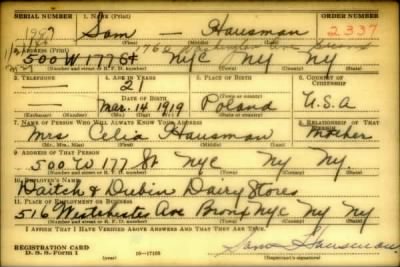 SERIAL NUMBER 1. NAME (Print) ORDER NUMBER
Sam — Hausman 2337
(First) (Middle) (Last)
2. ADDRESS (Print)
500 W 177 St NYC NY NY
(Number and street or R. F. D. number) (Town) (County) (State)
3. TELEPHONE 4. AGE IN YEARS 5. PLACE OF BIRTH 6. COUNTRY OF CITIZENSHIP
— 21 Poland U.S.A
DATE OF BIRTH
Mar. 14 1919
(Exchange) (Number) (Mo.) (Day) (Yr.) (Town or county) (State or country)
7. NAME OF PERSON WHO WILL ALWAYS KNOW YOUR ADDRESS 8. RELATIONSHIP OF THAT PERSON
Mrs Celia Hausman Mother
(Mr., Mrs., Miss) (First) (Middle) (Last)
9. ADDRESS OF THAT PERSON
500 W 177 St NYC NY NY
(Number and street or R. F. D. number) (Town) (County) (State)
10. EMPLOYER'S NAME
Daitch & Dubin Dairy Stores
11. PLACE OF EMPLOYMENT OR BUSINESS
516 Westchester Ave Bronx NYC NY NY
(Number and street or R. F. D. number) (Town) (County) (State)
I AFFIRM THAT I HAVE VERIFIED ABOVE ANSWERS AND THAT THEY ARE TRUE.
REGISTRATION CARD
D. S. S. Form 1 16—17105 Sam Hausman